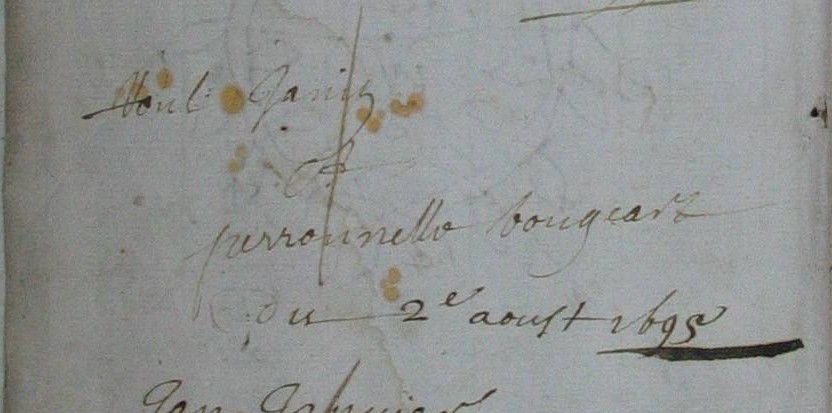 Noul Janig
et
perronnelle bougeart
du 2e aoust 1695
Jan Janvier